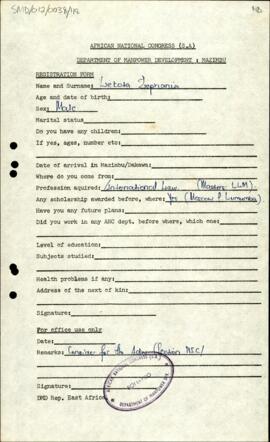 SMD/012/0038/12
AFRICAN NATIONAL CONGRESS (S.A)
DEPARTMENT OF MANPOWER DEVELOPMENT : MAZIMBU
REGISTRATION FORM
Name and Surname: Lebota Zephonia
Age and date of birth:
Sex: Male
Marital status
Do you have any children:
If yes, ages, number etc:
Date of arrival in Mazimbu/Dakawa:
Where do you come from:
Profession aquired: International Law. (Masters LLM)
Any scholarship awarded before, where: Yes (Moscow P. Lumumba)
Have you any future plans:
Did you work in any ANC dept. before where, which one:
Level of education:
Subjects studied:
Health problems if any:
Address of the next of kin:
Signature:
For office use only
Date:
Remarks: Consider for the
Signature:
DMD Rep. East Africa